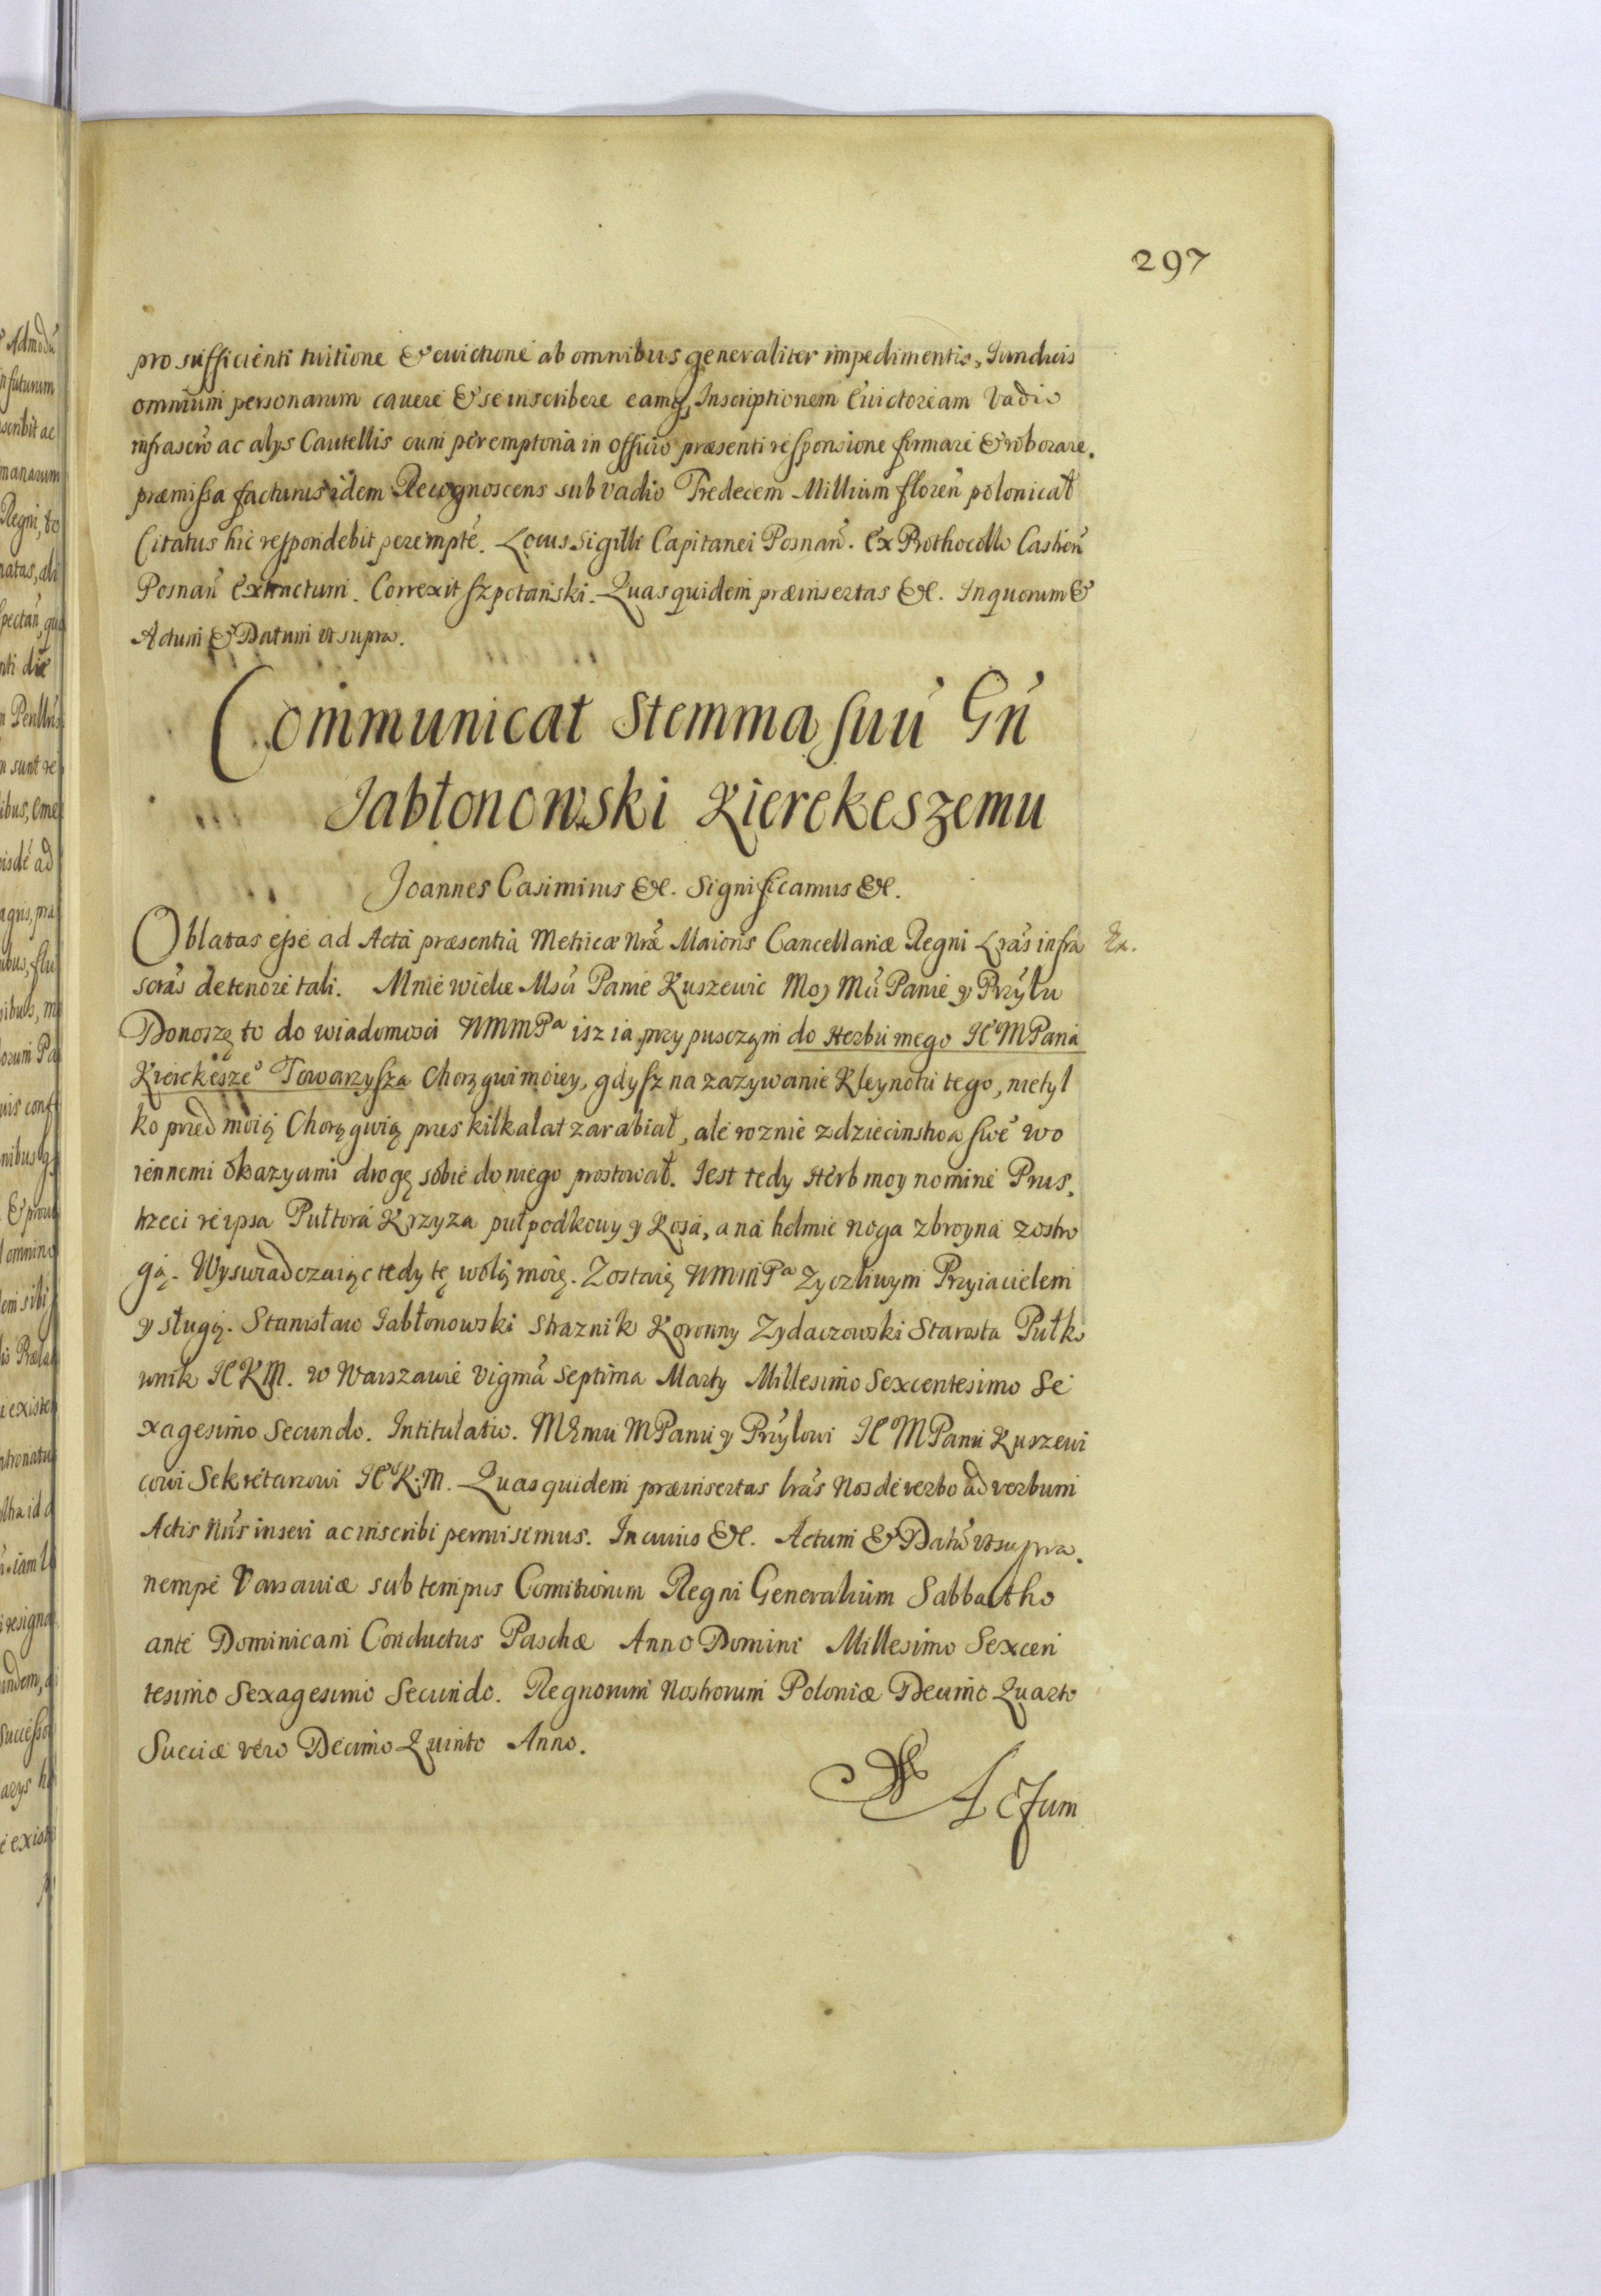 297
pro sufficienti tuitione & evictione ab omnibus generaliter impedimentis, Iuribusvis
omnium personarum cavere & se inscribere eamq, Inscriptionem Evictoream Vadio
infrascro ac alys Cautellis cum peremptoria in officio præsenti responsione firmare & roborare.
præmissa facturus idem Recognoscens sub vadio Tredecem Millium floreń polonicat
Citatus hic respondebit perempté. Locus Sigilli Capitanei Posnań. Ex Prothocollo Castreń
Posnań Extractum. Correxit Szpotański. Quas quidem præinsertas &c. In quorum &
Actum & Datum ut supra.
Communicat Stemma suú Gń
Jabłonowski Kierekeszemu
Joannes Casimirus &c. Significamus &c.
Oblatas esse ad Acta præsentia Metricæ Nræ Maioris Cancellariæ Regni Lrás infra Ex.
scrás de tenore tali. Mnie wielce Msú Panie Kuszewic Moy Mú Panie y Przyłu
Donoszę to do wiadomosci WMMPa isz ia przypusczam do Herbu mego JEoMPana
Kierekesze° Towarzysza Chorągwi moiey, gdysz na zazywanie Kleynotu tego, nietyl
ko pred moią Chorągwią pres kilkalat zarabiał, ale roznie zdziecinstwa swé wo
iennemi okazyami drogę sobie do niego prostował. Iest tedy Herb moy nomine Prus,
trzeci reipsa Pułtora Krzyza pułpodkowy y Kosa, a na helmie noga zbroyna zostro
gą. Wyswiadczaiąc tedy tę wolą moię. Zostaię WMMPa Zyczliwym Przyiacielem
y sługą. Stanisław Jabłonowski Straznik Koronny Zydaczowski Starosta Pułko
wnik JEKM. w Warszawie Vigmá Septima Marty Millesimo Sexcentesimo Se
xagesimo Secundo. Intitulatio. MEmu MPanu y Przyłowi JE MPanu Kuszewi
cowi Sekretarzowi JEoK.M. Quas quidem præinsertas lrás Nos de verbo ad verbum
Actis Nrís inseri ac inscribi permisimus. In cuius &c. Actum & Datú ut supra.
nempe Varsaviæ sub tempus Comitiorum Regni Generalium Sabbatho
ante Dominicam Conductus Paschæ Anno Domini Millesimo Sexcen
tesimo Sexagesimo Secundo. Regnorum Nostrorum Poloniæ Decimo Quarto
Sueciæ vero Decimo Quinto Anno.
Actum